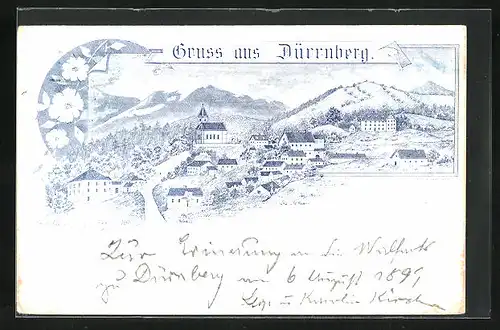 Gruss aus Dürrnberg.
Zur Erinerung an die Wallfart
zu Dürnberg am 6 August 1895
u Karolin